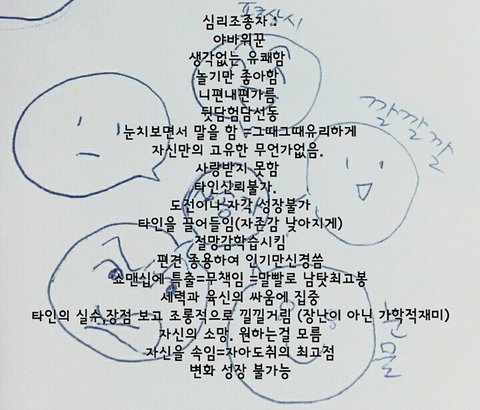 표도산시
심리조종자 :
야바위꾼
생각없는 유쾌함
놀기만 좋아함
니편내편가름
뒷담험담선동
깔깔깔
눈치보면서 말을 함 =그때그때유리하게
자신만의 고유한 무언가없음.
사랑받지 못함
타인신뢰불자.
도전이나 자각 성장불가
타인을 끌어들임(자존감 낮아지게)
절망감학습시킴
편견 종용하여 인기만신경씀
쇼맨십에 특출=무책임 =말빨로 남탓최고봉
세력과 육신의 싸움에 집중
타인의 실수,장점 보고 조롱적으로 낄낄거림 (장난이 아닌 가학적재미)
자신의 소망. 원하는걸 모름
자신을 속임=자아도취의 최고점
변화 성장 불가능
눈물